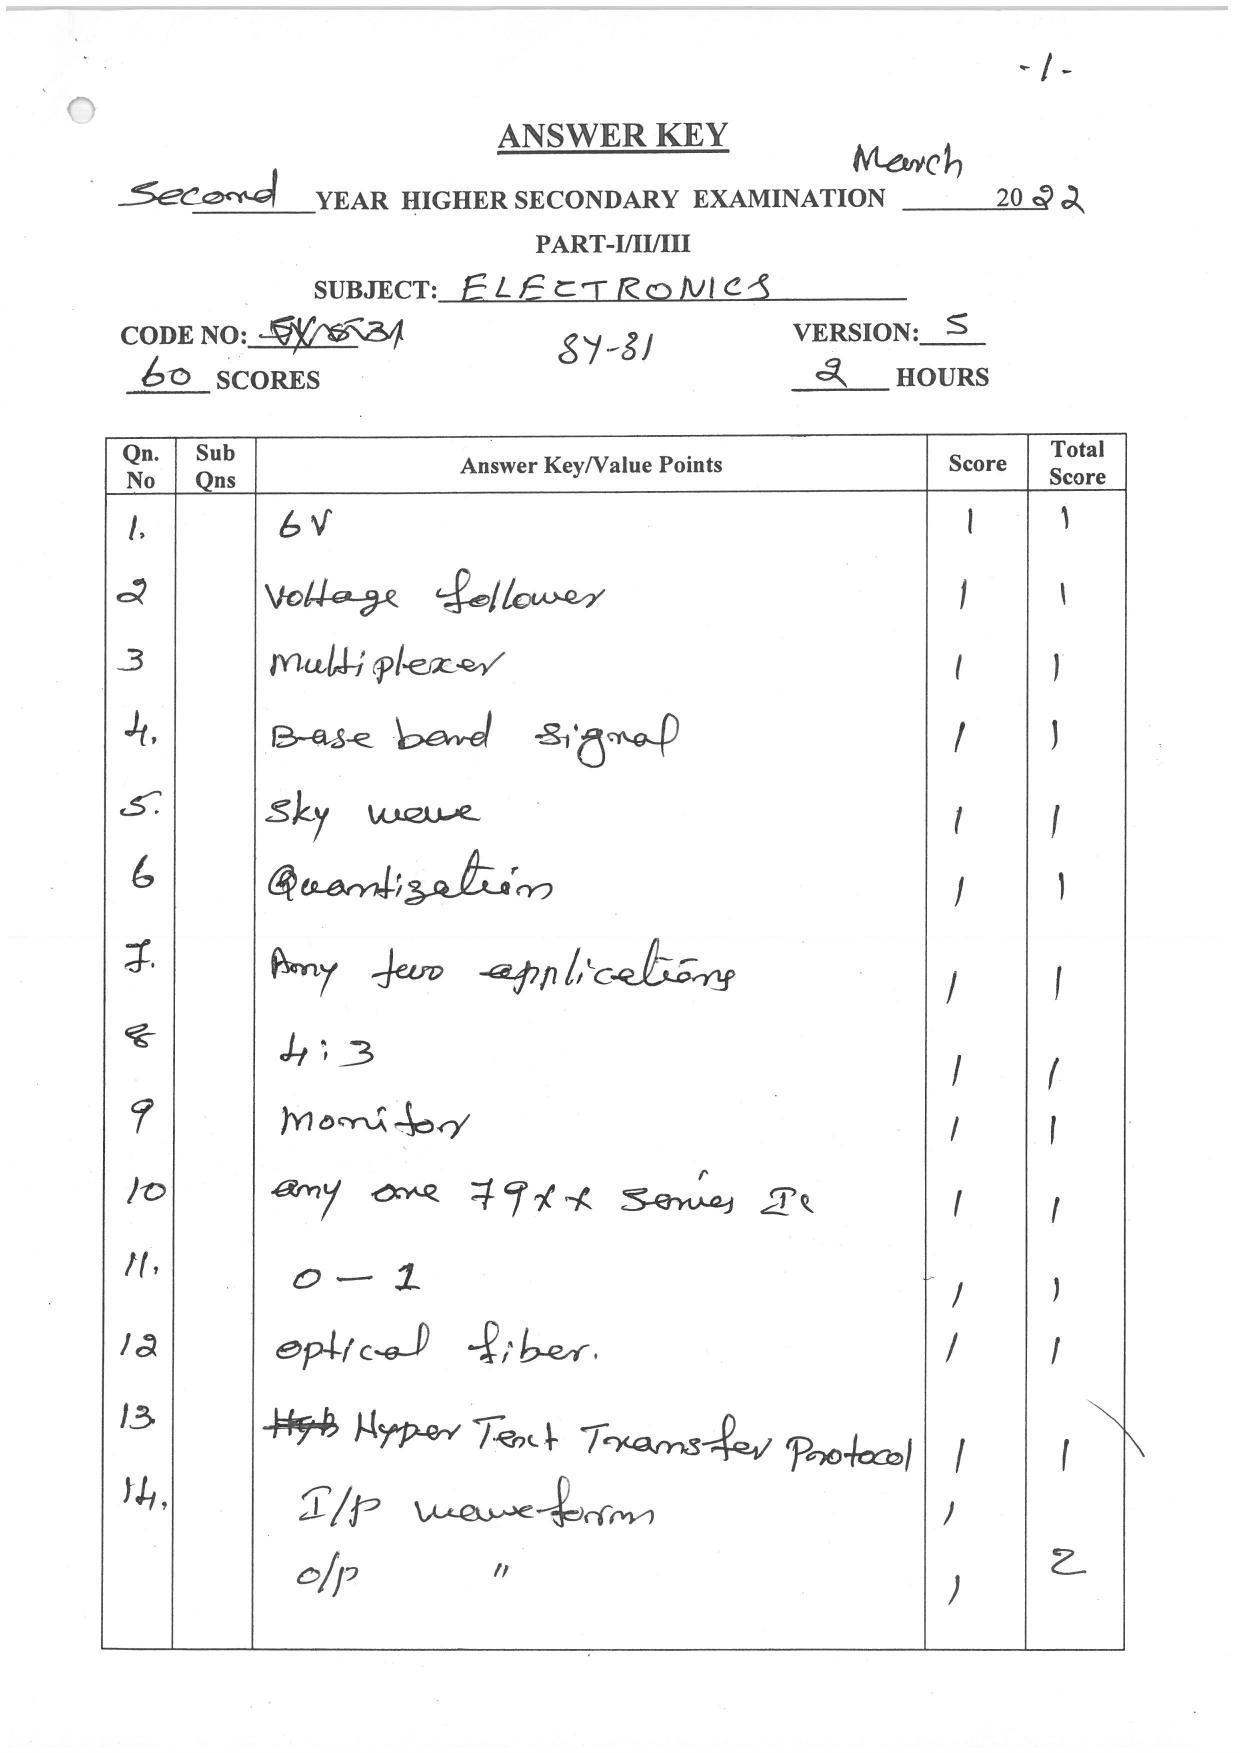 -1-
ANSWER KEY
Second YEAR HIGHER SECONDARY EXAMINATION March 2022
PART-I/II/III
SUBJECT: ELECTRONICS
CODE NO: SY-31 VERSION: S
60 SCORES 2 HOURS
Qn. No Sub Qns Answer Key/Value Points Score Total Score
1. 6V 1 1
2 Voltage follower 1 1
3 Multiplexer 1 1
4. Base band signal 1 1
5. Sky wave 1 1
6 Quantization 1 1
7. Any two applications 1 1
8 4:3 1 1
9 Monitor 1 1
10 any one 79xx series IC 1 1
11. 0 – 1 1 1
12 optical fiber. 1 1
13. Hyper Text Transfer Protocol 1 1
14. I/p waveform 1
o/p " 1 2